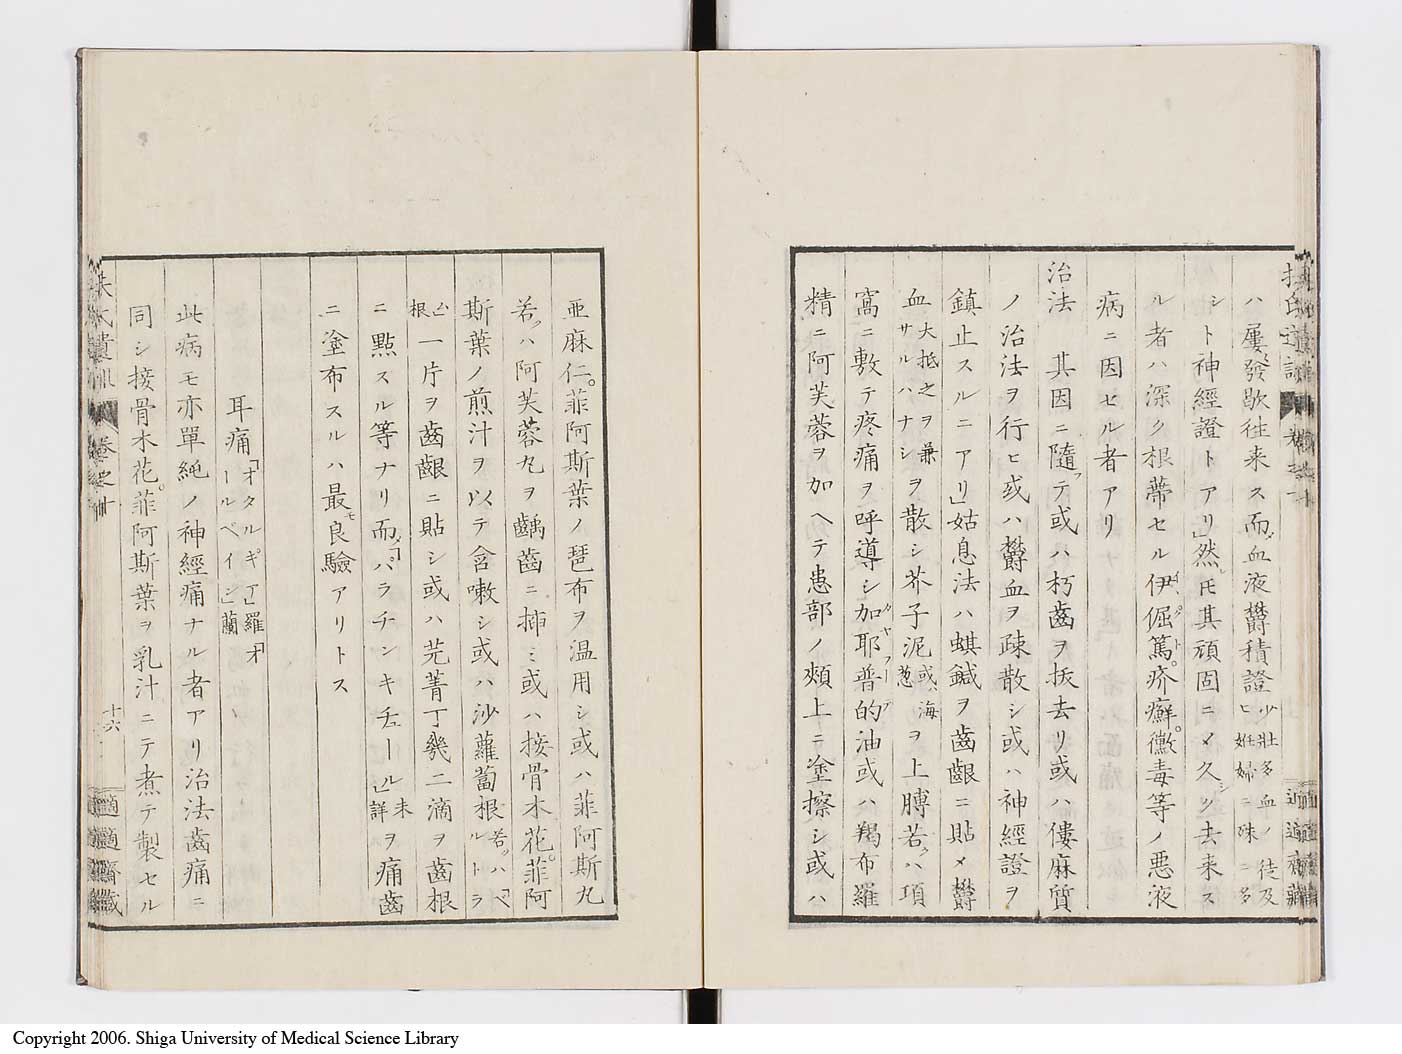 ハ屢發歇往来ス而血液欝積證少壯多血ノ徒及ヒ妊婦ニ殊ニ多
シト神經證トアリ」然𪜈其頑固ニメ久シク去来ス
ル者ハ深ク根蔕セル伊倔篤疥癬黴毒等ノ悪液
病ニ因セル者アリ
治法 其因ニ隨テ或ハ朽齒ヲ拔去リ或ハ僂麻質
ノ治法ヲ行ヒ或ハ欝血ヲ疎散シ或ハ神經證ヲ
鎮止スルニアリ」姑息法ハ蜞鍼ヲ齒齦ニ貼メ欝
血大抵之ヲ兼サルハナシヲ散シ芥子泥或海葱ヲ上膊若クハ項
窩ニ敷テ疼痛ヲ呼導シ加耶普的油或ハ羯布羅
精ニ阿芙蓉ヲ加ヘテ患部ノ頰上ニ塗擦シ或ハ
亜麻仁。菲阿斯葉ノ琶布ヲ温用シ或ハ菲阿斯丸
若クハ阿芙蓉丸ヲ齲齒ニ挿ミ或ハ接骨木花。菲阿
斯葉ノ煎汁ヲ以テ含嗽シ或ハ沙蘿蔔根若クハ「ベルトラ
ム」根一片ヲ齒齦ニ貼シ或ハ芫菁丁幾二滴ヲ齒根
ニ點スル等ナリ而「パラチンキチュール」未詳ヲ痛齒
ニ塗布スルハ最良驗アリトス
耳痛「オタルギア」羅「オールペイン」蘭
此病モ亦單純ノ神經痛ナル者アリ治法齒痛ニ
同シ接骨木花。菲阿斯葉ヲ乳汁ニテ煮テ製セル
扶氏遺訓 卷之十 十六 適適齋藏
Copyright 2006. Shiga University of Medical Science Library